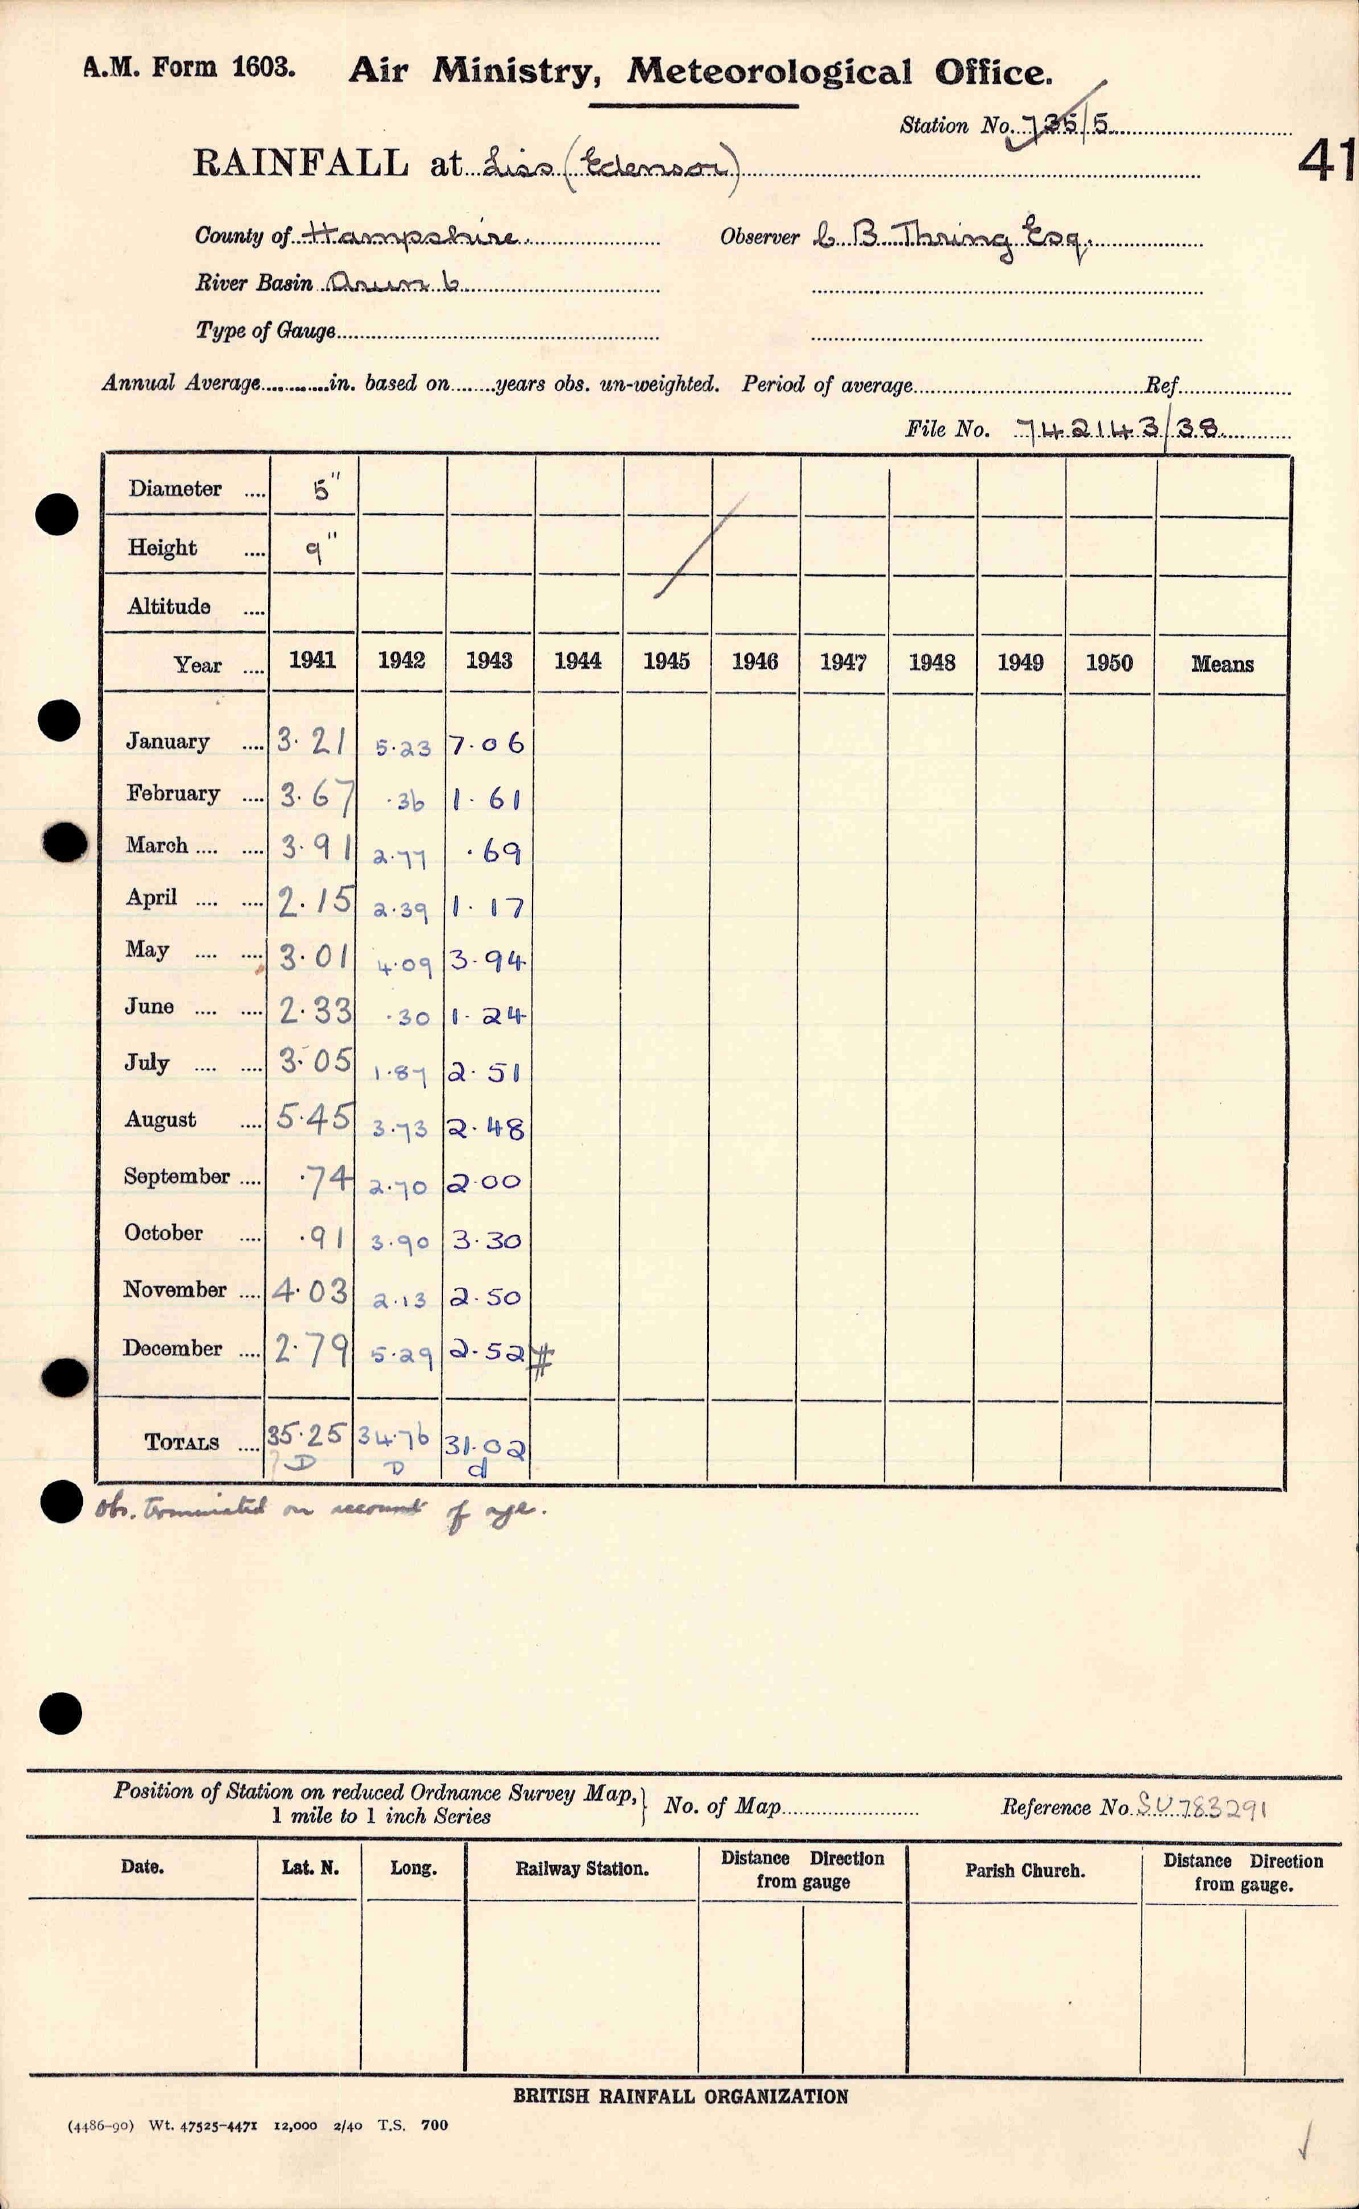 A.M. Form 1603. Air Ministry, Meteorological Office.
Station No. 735/5
41
RAINFALL at Liss (Edensor)
County of Hampshire. Observer C B Thring Esq.
River Basin Arun 6
Type of Gauge
Annual Average............in. based on........years obs. un-weighted. Period of average Ref
File No. 742143/38
Diameter .... 5"
Height .... 9"
Altitude ....
Year .... 1941 1942 1943 1944 1945 1946 1947 1948 1949 1950 Means
January .... 3.21 5.23 7.06
February .... 3.67 .36 1.61
March .... .... 3.91 2.77 .69
April .... .... 2.15 2.39 1.17
May .... .... 3.01 4.09 3.94
June .... .... 2.33 .30 1.24
July .... .... 3.05 1.87 2.51
August .... 5.45 3.73 2.48
September .... .74 2.70 2.00
October .... .91 3.90 3.30
November .... 4.03 2.13 2.50
December .... 2.79 5.29 2.52 #
TOTALS .... 35.25 34.76 31.02
D D d
Obs. terminated on account of age.
Position of Station on reduced Ordnance Survey Map, } No. of Map Reference No. SU783291
1 mile to 1 inch Series
Date. Lat. N. Long. Railway Station. Distance Direction from gauge Parish Church. Distance Direction from gauge.
BRITISH RAINFALL ORGANIZATION
(4486-90) Wt. 47525-4471 12,000 2/40 T.S. 700